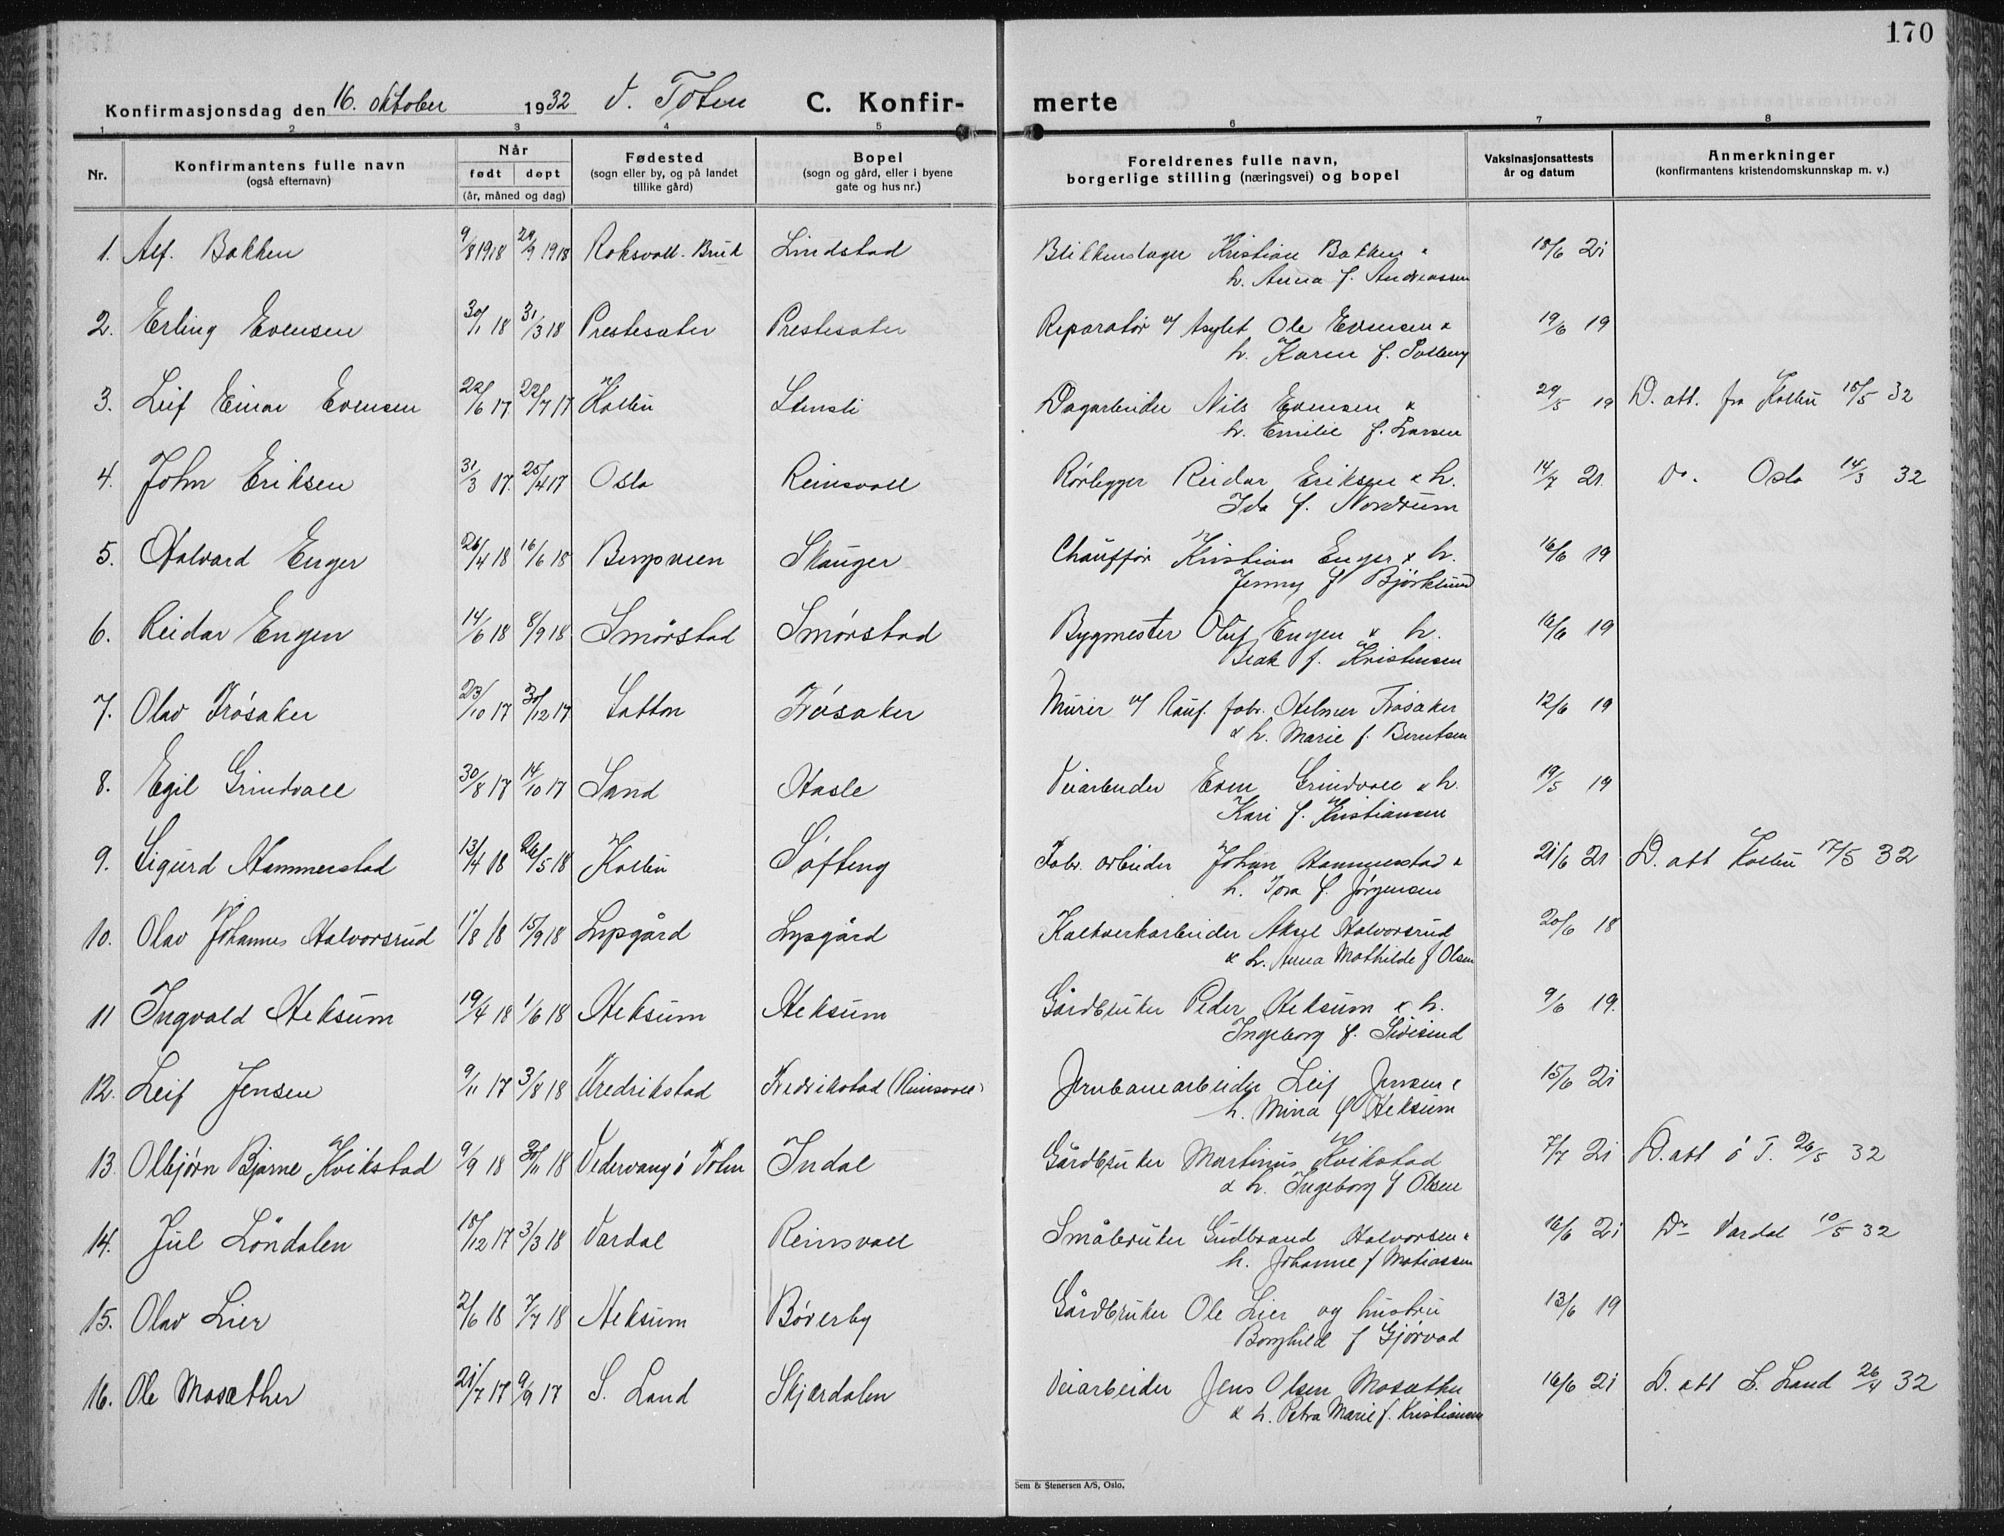 170
Konfirmasjonsdag den 16. oktober 1932 V. Toten C. Konfir- merte
1 2 3 4 5 6 7 8
Nr. Konfirmantens fulle navn (også efternavn) Når født døpt (år, måned og dag) Fødested (sogn eller by, og på landet tillike gård) Bopel (sogn og gård, eller i byene gate og hus nr.) Foreldrenes fulle navn, borgerlige stilling (næringsvei) og bopel Vaksinasjonsattests år og datum Anmerkninger (konfirmantens kristendomskunnskap m. v.)
1. Alf. Bakken 9/8 1918 29/9 1918 Roksvoll. Bruk Lindstad Blikkenslager Kristian Bakken &
h. Anna f. Andreassen 18/6 21
2. Erling Evensen 30/1 18 31/3 18 Prestesæter Prestesæter Reparatør v/ Asylet Ole Evensen &
h. Karen f. Solberg 19/6 19
3. Leif Einar Evensen 22/6 17 22/7 17 Kolbu Stensli Dagarbeider Nils Evensen &
h. Emilie f. Larsen 29/5 19 D. att. fra Kolbu 18/5 32
4. John Eriksen 31/3 17. 25/4 17 Oslo Reinsvoll Rørlegger Reidar Eriksen & h.
Ida f. Nordrum 14/7 21. Do. Oslo 14/3 32
5. Halvard Enger 26/4 18 16/6 18 Skauger Chauffør Kristian Enger & h.
Jenny f Bjørklund 16/6 19
6. Reidar Engen 14/6 18 8/9 18 Smørstad Smørstad Bygmester Oluf Engen & h.
f. Kristensen 16/6 19
7. Olav Frøsaker 23/10 17 30/12 17 Frøsaker Murer v/ Rauf. fabr. Helmer Frøsaker
& h. Marie f. Berntsen 12/6 19
8. Egil Grindvoll 30/8 17 14/10 17 Sund Hasle Veiarbeider Even Grindvoll & h.
Kari f. Kristiansen 19/5 19
9. Sigurd Hammerstad 13/4 18 26/5 18 Kolbu Søfteng Fabr. arbeider Johan Hammerstad &
h. Tora f. Jørgensen 21/6 21 D. att Kolbu 17/5 32
10. Olav Johannes Halvorsrud 1/8 18 15/9 18 Lysgård Lysgård Kalkverkarbeider Aksel Halvorsrud
& h. Anna Mathilde f Olsen 20/6 18
11 Ingvald Heksum 19/4 18 1/6 18 Heksum Heksum Gårdbruker Peder Heksum & h.
Ingeborg f. 9/6 19.
12. Leif Jensen 9/11 17 3/8 18 Fredrikstad Fredrikstad (Reinsvoll) Jernbanearbeider Leif Jensen &
h. Mina f Heksum 15/6 21
13. Olbjørn Bjarne Kvikstad 9/9 18 30/11 18 Vedervang ø Toten Indal Gårdbruker Martinus Kvikstad
& h. Ingeborg f Olsen 7/7 21 D. att ø T. 26/5 32
14. Jul Løndalen 18/12 17 3/3 18 Vardal Reinsvoll Småbruker Gudbrand Halvorsen &
h. Johanne f Matiassen 16/6 21 Do Vardal 10/5 32
15. Olav Lier 2/6 18 7/7 18 Heksum Bøverby Gårdbruker Ole Lier og hustru
Borghild f Gjørvad 13/6 19
16. Ole Mosæther 21/7 17 9/9 17 S. Land Skjærdalen Veiarbeider Jens Olsen Mosæther
& h. Petra Marie f. Kristiansen 16/6 21 D. att S. Land 26/4 32
Sem & Stenersen A/S, Oslo.